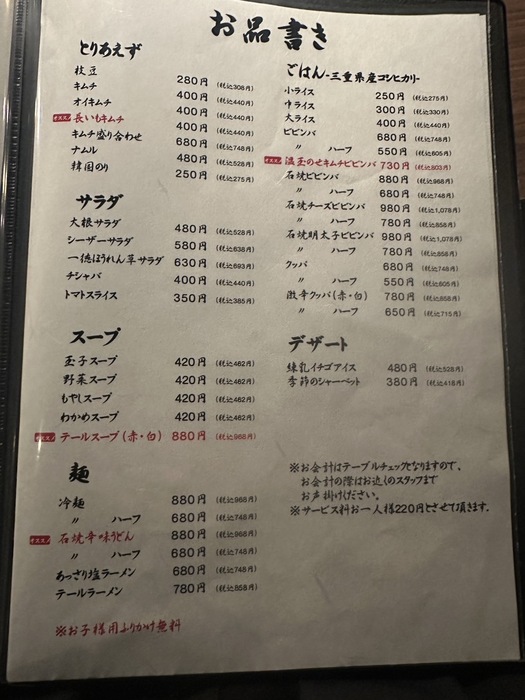 お品書き
とりあえず
枝豆 280円 (税込308円)
キムチ 400円 (税込440円)
オイキムチ 400円 (税込440円)
オススメ 長いもキムチ 400円 (税込440円)
キムチ盛り合わせ 680円 (税込748円)
ナムル 480円 (税込528円)
韓国のり 250円 (税込275円)
サラダ
大根サラダ 480円 (税込528円)
シーザーサラダ 580円 (税込638円)
一徳ほうれん草サラダ 630円 (税込693円)
チシャバ 400円 (税込440円)
トマトスライス 350円 (税込385円)
スープ
玉子スープ 420円 (税込462円)
野菜スープ 420円 (税込462円)
もやしスープ 420円 (税込462円)
わかめスープ 420円 (税込462円)
オススメ テールスープ(赤・白) 880円 (税込968円)
麺
冷麺 880円 (税込968円)
〃 ハーフ 680円 (税込748円)
オススメ 石焼辛味うどん 880円 (税込968円)
〃 ハーフ 680円 (税込748円)
あっさり塩ラーメン 680円 (税込748円)
テールラーメン 780円 (税込858円)
※お子様用ふりかけ無料
ごはん-三重県産コシヒカリ-
小ライス 250円 (税込275円)
中ライス 300円 (税込330円)
大ライス 400円 (税込440円)
ビビンバ 680円 (税込748円)
〃 ハーフ 550円 (税込605円)
オススメ 温玉のせキムチビビンバ 730円 (税込803円)
石焼ビビンバ 880円 (税込968円)
〃 ハーフ 680円 (税込748円)
石焼チーズビビンバ 980円 (税込1,078円)
〃 ハーフ 780円 (税込858円)
石焼明太子ビビンバ 980円 (税込1,078円)
〃 ハーフ 780円 (税込858円)
クッパ 680円 (税込748円)
〃 ハーフ 550円 (税込605円)
激辛クッパ(赤・白) 780円 (税込858円)
〃 ハーフ 650円 (税込715円)
デザート
練乳イチゴアイス 480円 (税込528円)
季節のシャーベット 380円 (税込418円)
※お会計はテーブルチェックとなりますので、
お会計の際はお近くのスタッフまで
お声掛けください。
※サービス料お一人様220円とさせて頂きます。